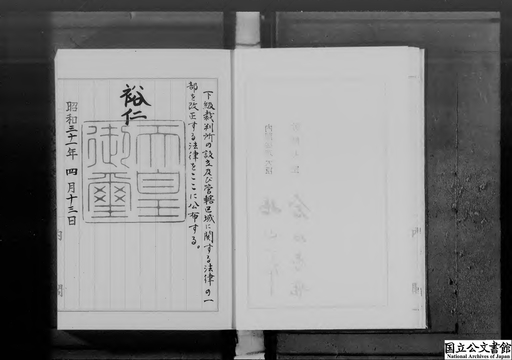 下級裁判所の設立及び管轄区域に関する法律の一
部を改正する法律をここに公布する。
裕仁
天皇
御璽
昭和三十一年四月十三日
国立公文書館
National Archives of Japan